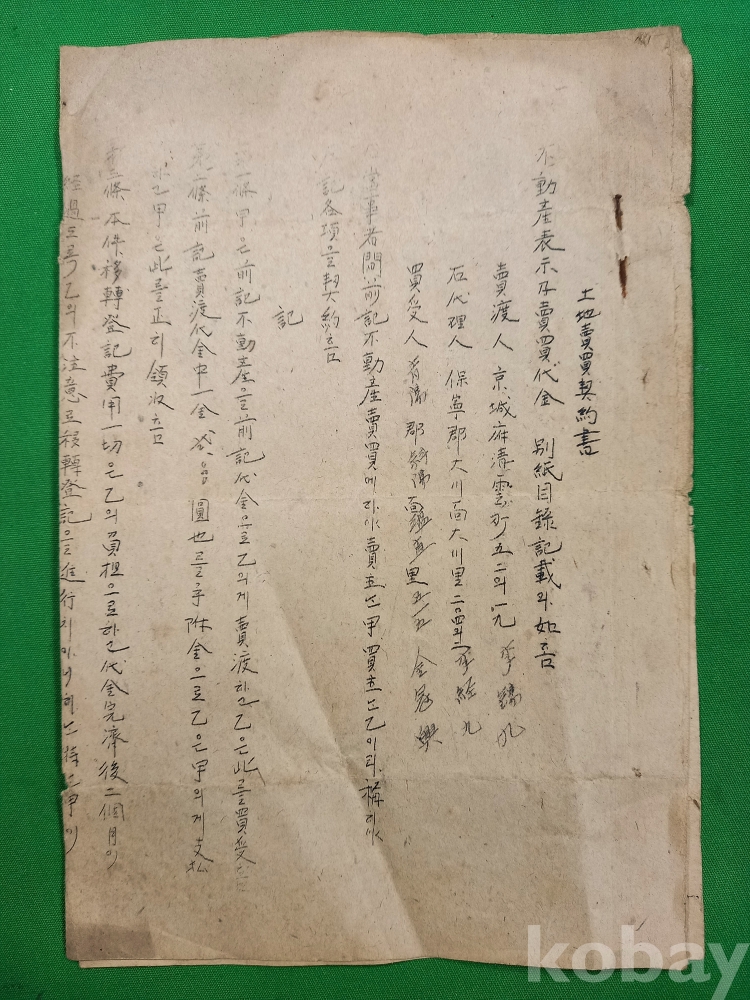 土地賣買契約書
不動產表示及賣買代金 別紙目錄記載와如홈
賣渡人 京城府清雲町五二의一九 李
右代理人 保寧郡大川面大川里二〇四의二 李經九
買受人 郡 面 里五一五 金 興
當事者間前記不動產賣買에對하야賣主는甲買主는乙이라稱하야
記各項을契約홈
記
第一條甲은前記不動產을前記代金으로乙의게賣渡하고乙은此를買受홈
第二條前記賣渡代金中一金 圓也를手附金으로乙은甲의게支拂
하고甲은此를正히領收홈
第三條本件移轉登記費用一切은乙의負担으로하고代金完濟後二個月이
經過토록乙의不注意로移轉登記를進行치아니하는時는甲이
kobay